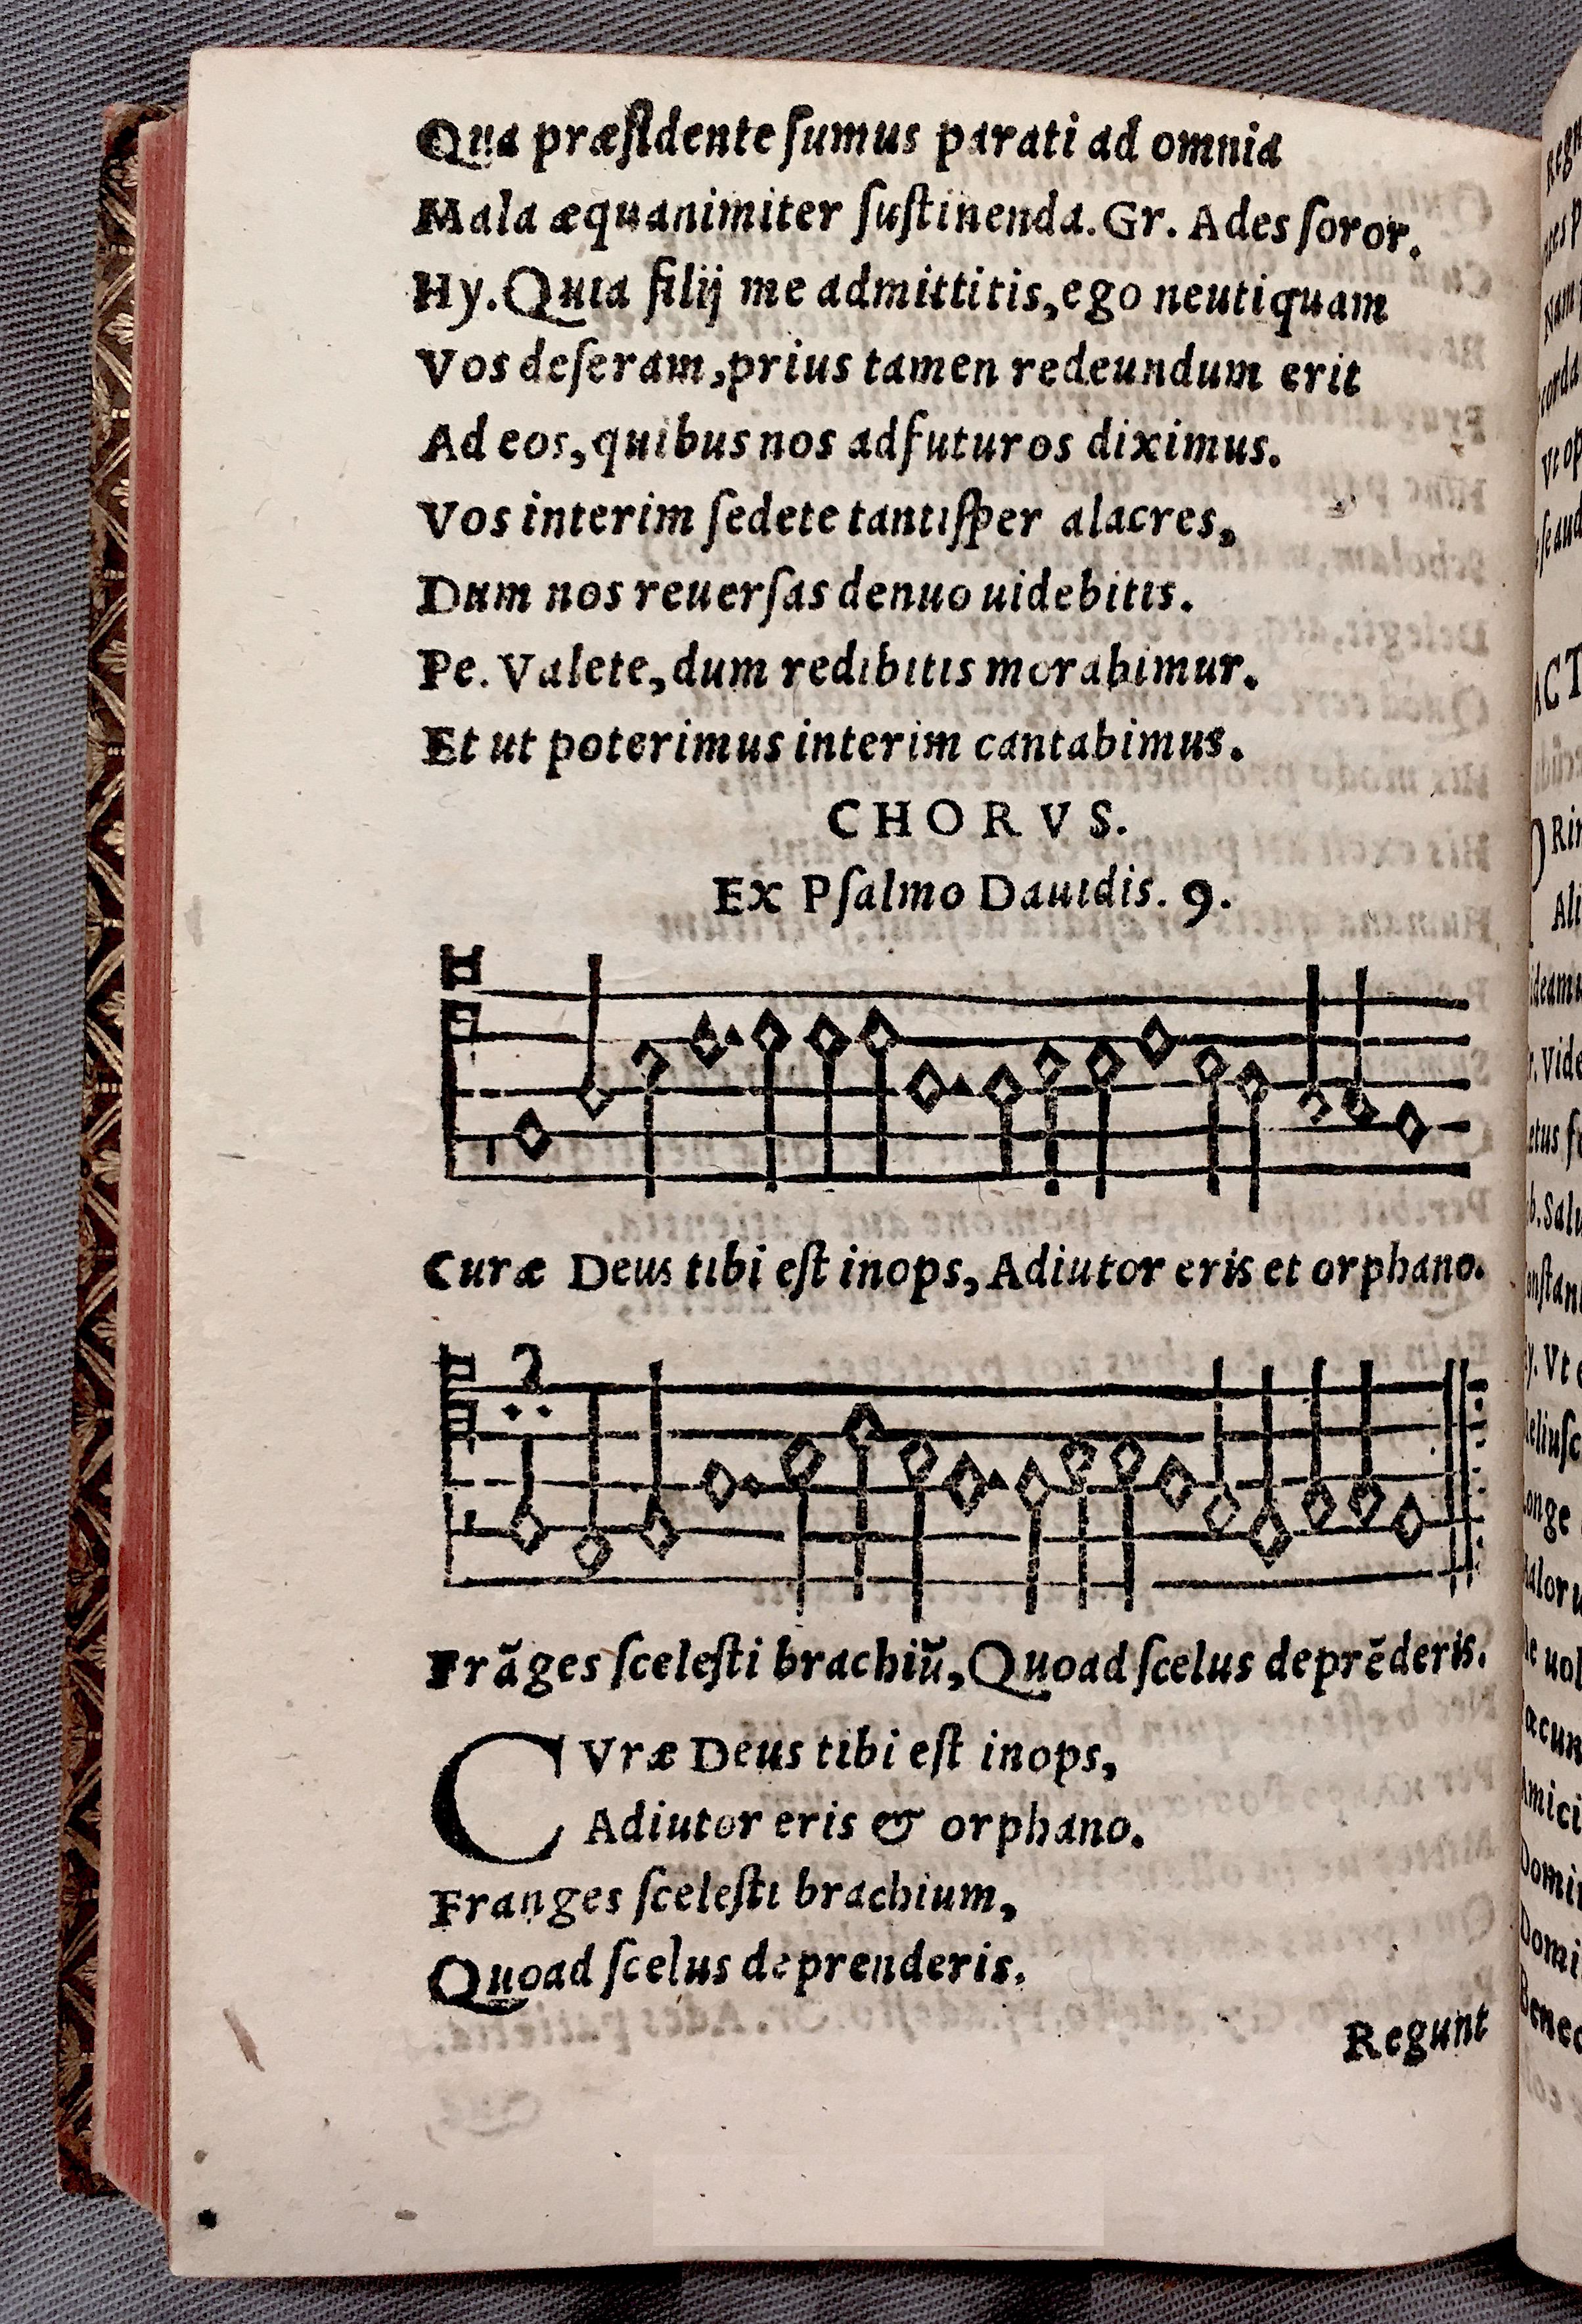 Qua præſidente ſumus parati ad omnia
Mala æquanimiter ſuſtinenda. Gr. Ades ſoror.
Hy. Quia filij me admittitis, ego neutiquam
Vos deſeram, prius tamen redeundum erit
Ad eos, quibus nos adfuturos diximus.
Vos interim ſedete tantiſper alacres,
Dum nos reuerſas denuo uidebitis.
Pe. Valete, dum redibitis morabimur.
Et ut poterimus interim cantabimus.
CHORVS.
Ex Pſalmo Dauidis. 9.
Curæ Deus tibi eſt inops, Adiutor eris et orphano.
Frãges ſceleſti brachiũ, Quoad ſcelus deprẽderis.
CVræ Deus tibi eſt inops,
Adiutor eris & orphano.
Franges ſceleſti brachium,
Quoad ſcelus deprenderis.
Regunt